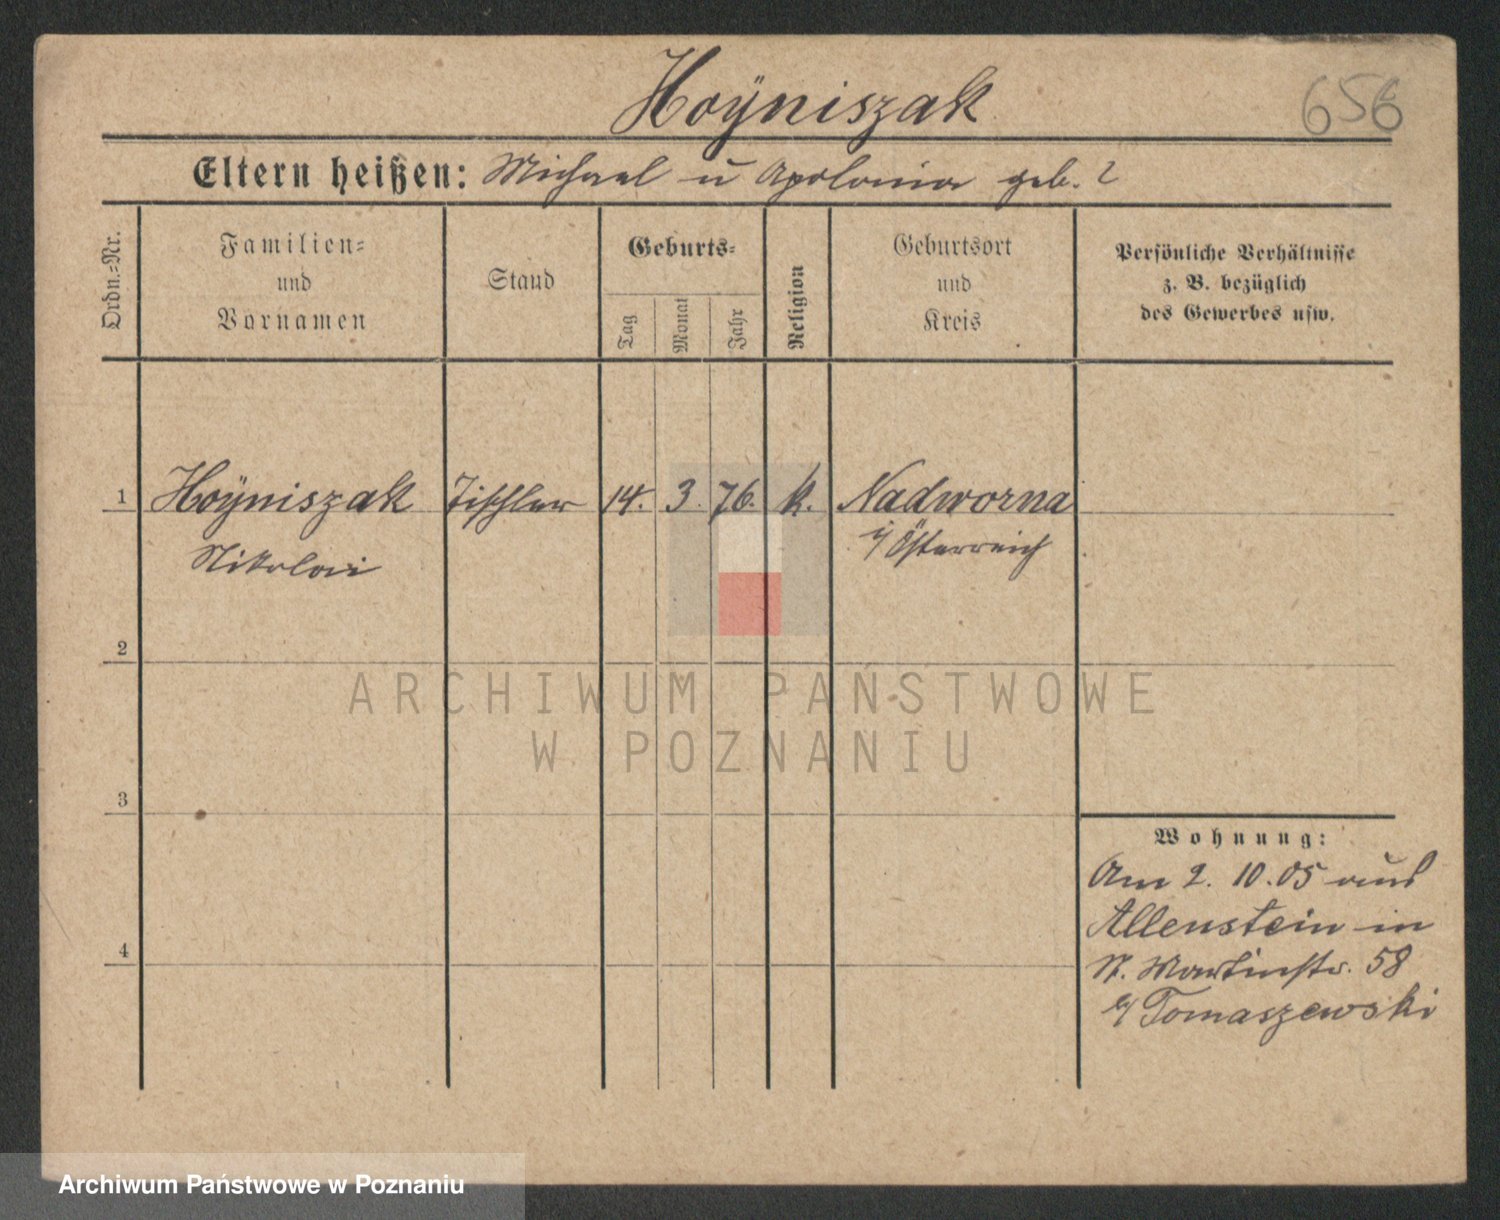 Hoÿniszak
656
Eltern heißen: Michael u Apolonia geb. ?
Ordn.-Nr.
Familien-
und
Vornamen
Stand
Geburts-
Tag
Monat
Jahr
Religion
Geburtsort
und
Kreis
Persönliche Verhältnisse
z. B. bezüglich
des Gewerbes usw.
1 Hoÿniszak Tischler 14. 3. 76. k. Nadworna
Nikolai i/ Österreich
2
ARCHIWUM PAŃSTWOWE
W POZNANIU
3
Wohnung:
Am 2. 10. 05 aus
4
Allenstein in
St. Martinstr. 58
b/ Tomaszewski
Archiwum Państwowe w Poznaniu